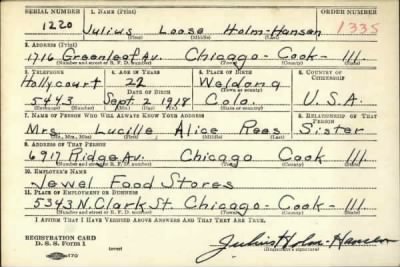 SERIAL NUMBER 1. NAME (Print) ORDER NUMBER
1220 Julius Loose Holm-Hansen 1335
(First) (Middle) (Last)
2. ADDRESS (Print)
1716 Greenleaf Av. Chicago - Cook - Ill.
(Number and street or R. F. D. number) (Town) (County) (State)
3. TELEPHONE 4. AGE IN YEARS 5. PLACE OF BIRTH 6. COUNTRY OF CITIZENSHIP
Hollycourt 22 Weldona
DATE OF BIRTH (Town or county)
5443 Sept. 2 1918 Colo. U.S.A.
(Exchange) (Number) (Mo.) (Day) (Yr.) (State or country)
7. NAME OF PERSON WHO WILL ALWAYS KNOW YOUR ADDRESS 8. RELATIONSHIP OF THAT PERSON
Mrs. Lucille Alice Rees Sister
(Mr., Mrs., Miss) (First) (Middle) (Last)
9. ADDRESS OF THAT PERSON
6917 Ridge Av. Chicago Cook Ill.
(Number and street or R. F. D. number) (Town) (County) (State)
10. EMPLOYER'S NAME
Jewel Food Stores
11. PLACE OF EMPLOYMENT OR BUSINESS
5343 N. Clark St. Chicago - Cook - Ill.
(Number and street or R. F. D. number) (Town) (County) (State)
I AFFIRM THAT I HAVE VERIFIED ABOVE ANSWERS AND THAT THEY ARE TRUE.
REGISTRATION CARD
D. S. S. Form 1 (over) Julius Holm-Hansen